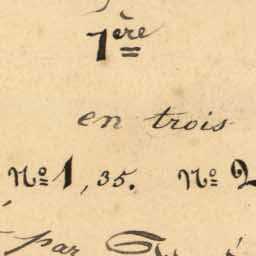 1ère
en trois
No 1, 35. No 2
par